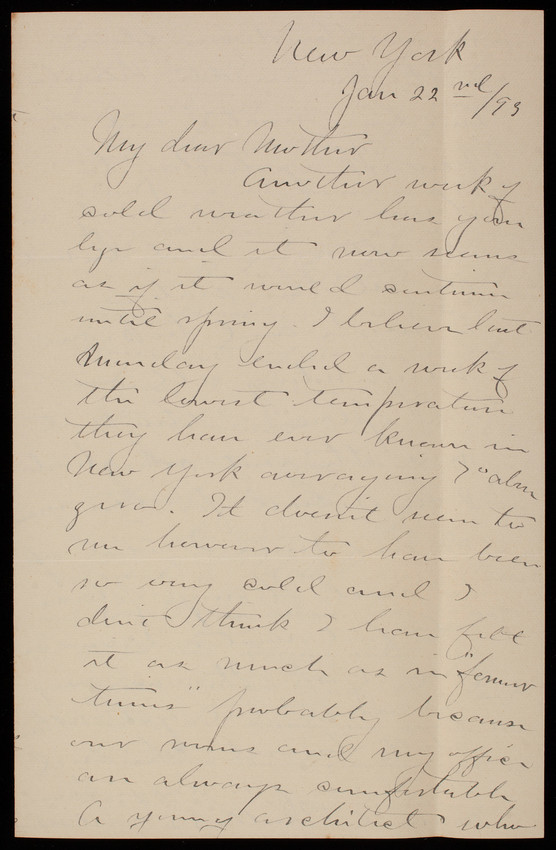 New York
Jan 22nd/93
My dear Mother
Another week of
cold weather has gone
by and it now seems
as if it would continue
until spring. I believe last
Monday ended a week of
the lowest temperature
they have ever known in
New York averaging 7° above
zero. It doesn't seem to
me however to have been
so very cold and I
don't think I have felt
it as much as in "former
times" probably because
our rooms and my office
are always comfortable
A young architect who